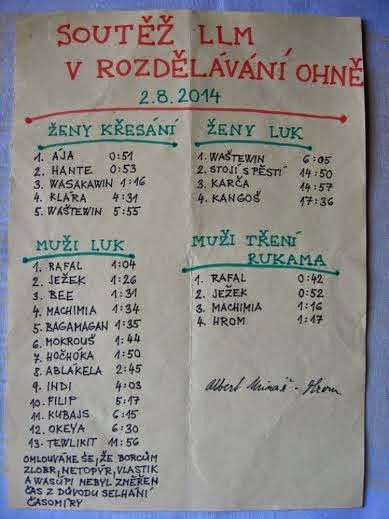 SOUTĚŽ LLM
V ROZDĚLÁVÁNÍ OHNĚ
2.8.2014
ŽENY KŘESÁNÍ
1. ÁJA 0:51
2. HANTE 0:53
3. WASAKAWIN 1:16
4. KLÁRA 4:31
5. WAŠTEWIN 5:55
ŽENY LUK
1. WAŠTEWIN 6:05
2. STOJÍ S PĚSTÍ 14:50
3. KARČA 14:57
4. KANGOŠ 17:36
MUŽI LUK
1. RAFAL 1:04
2. JEŽEK 1:26
3. BEE 1:31
4. MACHIMIA 1:34
5. BAGAMAGAN 1:35
6. MOKROUŠ 1:44
7. HOČHOKA 1:50
8. ABLAKELA 2:45
9. INDI 4:03
10. FILIP 5:17
11. KUBAJS 6:15
12. OKEYA 6:30
13. TEWLIKIT 11:56
OMLOUVÁME SE, ŽE BORCŮM
ZLOBR, NETOPÝR, VLASTIK
A WASÚPI NEBYL ZMĚŘEN
ČAS Z DŮVODU SELHÁNÍ
ČASOMÍRY
MUŽI TŘENÍ
RUKAMA
1. RAFAL 0:42
2. JEŽEK 0:52
3. MACHIMIA 1:16
4. HROM 1:17
Albert - Hrom